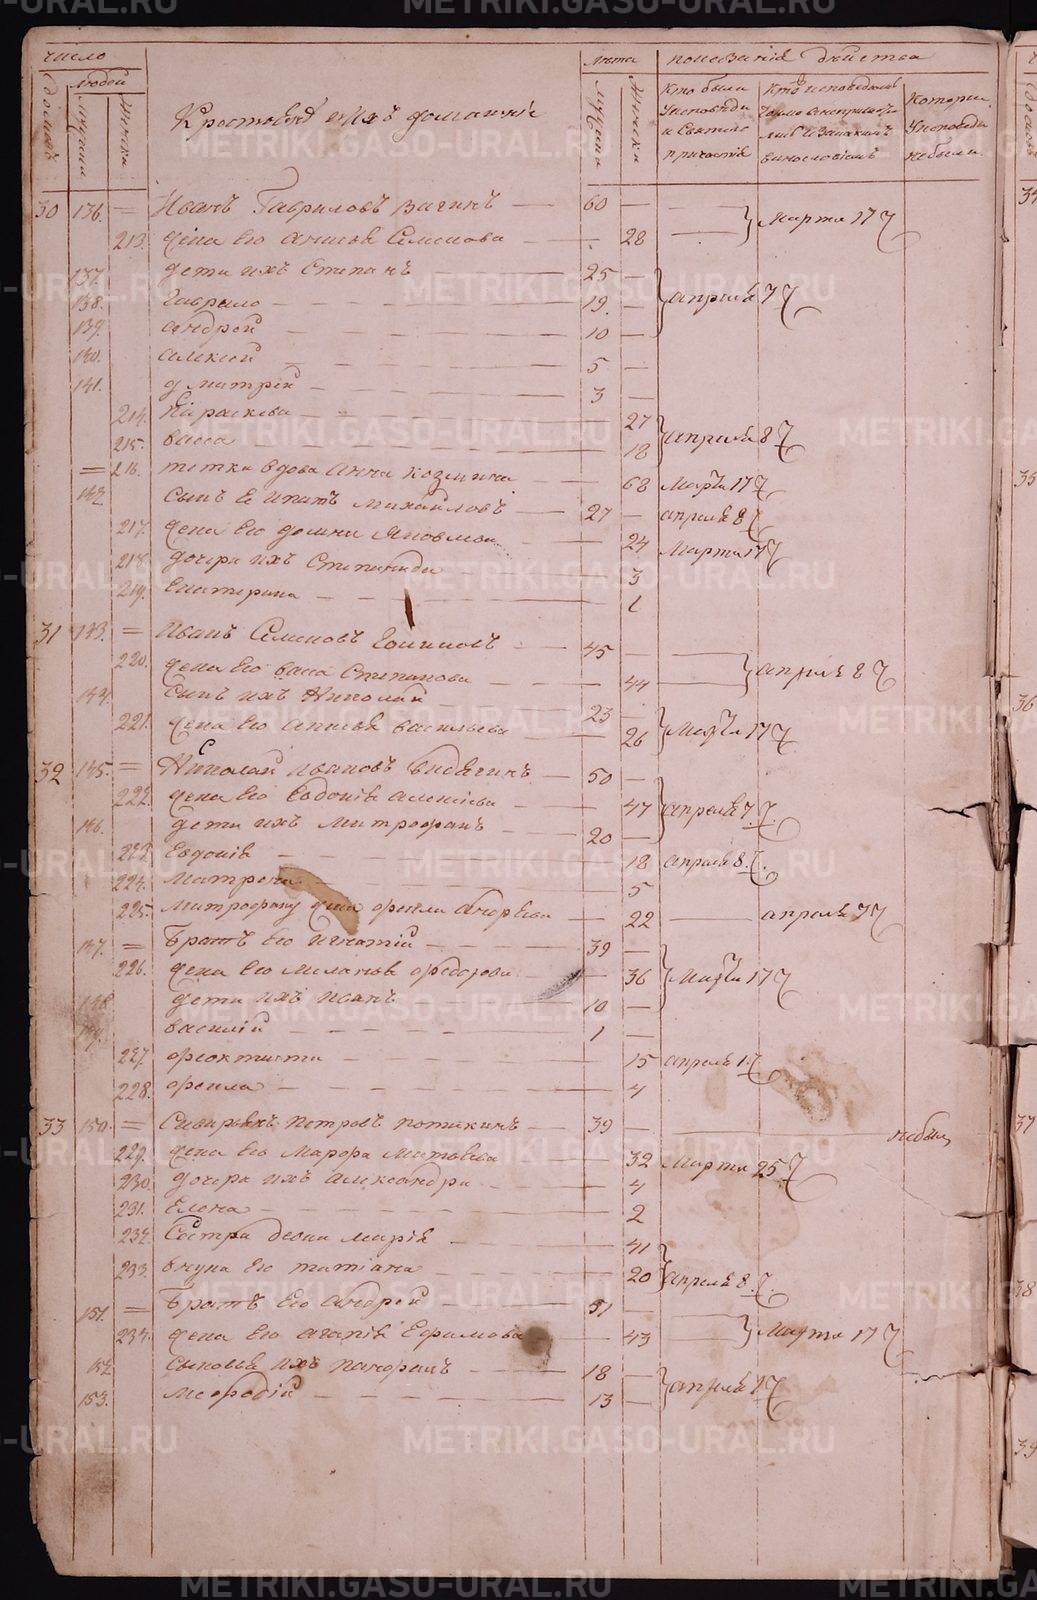 METRIKI.GASO-URAL.RU
число
людей
домовъ
мужеска
женска
Крестьяне и ихъ домашнiе
лета
мужеска
женска
показанiе действа
Кто были
у исповеди
и Святаго
причастiя
Которыя
у исповеди
небыли
30 136. = Иванъ Гавриловъ Вагинъ 60 Марта 17
213. жена его Анисья Семенова 28
137. дети ихъ Степанъ 25
138. Гаврило 19 апреля 7
139. Андрей 10
140. алексей 5
141. дмитрей 3
214. Параскева 27
215. васса 18 апреля 8
= 216. тетка вдова Анна Козмина 68 Марта 17
142. сынъ Ея Ипатъ Михайловъ 27 апреля 8
217. жена его домна Яковлева 24 Марта 17
218. дочери ихъ Степанида 3
219. Екатерина 1
31 143. = Иванъ Семеновъ 45
220. жена его васса Степанова 44 апреля 8
144. сынъ ихъ Николай 23
221. жена его васильева 26 Марта 17
32 145. = Николай Ивановъ 50
222. жена его Евдокiя алексеева 47 апреля 7
146. дети ихъ Митрофанъ 20
223. Евдокiя 18 апреля 8
224. Матрена 5
225. Митрофану жена фекла Андреева 22 апреля 7
147. = Братъ его Игнатiй 39
226. жена его меланья федорова 36 Марта 17
148. дети ихъ Иванъ 10
149. василiй 1
227. феоктиста 15 апреля 1
228. фекла 4
33 150. = Северьянъ Петровъ 39 небылъ
229. жена его Марфа Матвеева 32 Марта 25
230. дочери ихъ александра 4
231. Елена 2
232. Сестра девка марiя 41
233. внука Ея татiана 20 апреля 8
151. = Братъ Его Андрей 51
234. жена его агапiя Ефимова 43 Марта 17
152. сыновья ихъ 18
153. меѳодiй 13 апреля 1
34
35
36
37
38
39